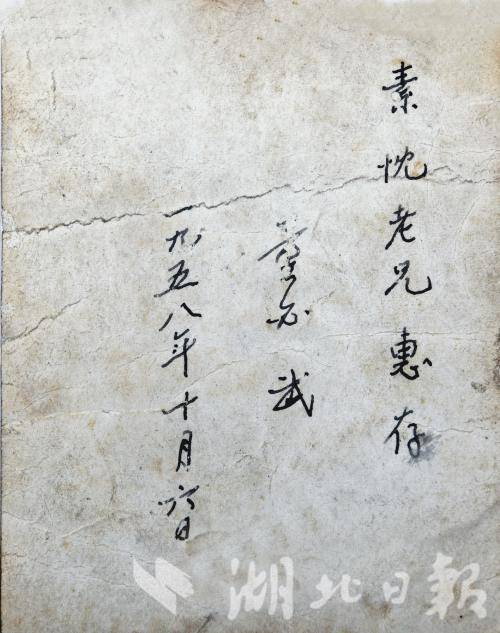 素忱老兄惠存
董必武
一九五八年十月六日
湖北日報